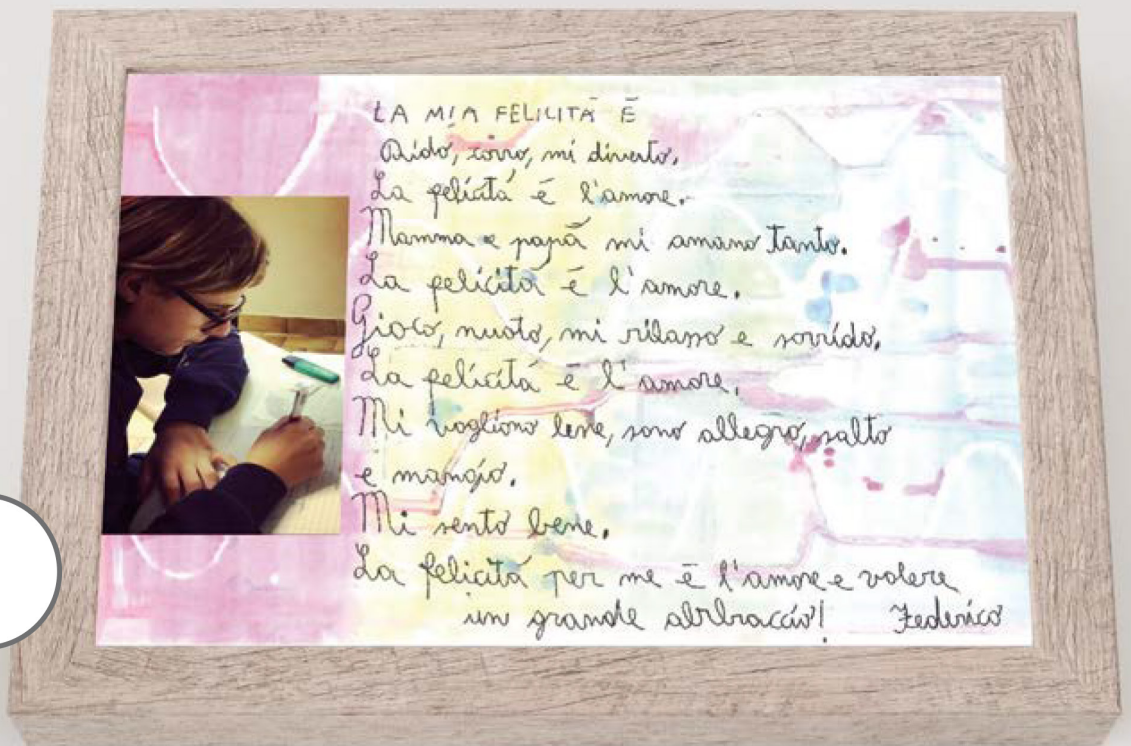 LA MIA FELICITÀ È
Rido, corro, mi diverto.
La felicità è l'amore.
Mamma e papà mi amano tanto.
La felicità è l'amore.
Gioco, nuoto, mi rilasso e sorrido.
La felicità è l'amore.
Mi vogliono bene, sono allegro, salto
e mangio.
Mi sento bene.
La felicità per me è l'amore e volere
un grande abbraccio! Federico